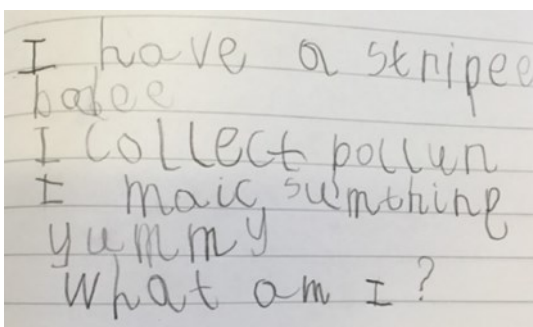 I have a stripee
badee
I collect pollun
I maic sumthing
yummy
What am I?